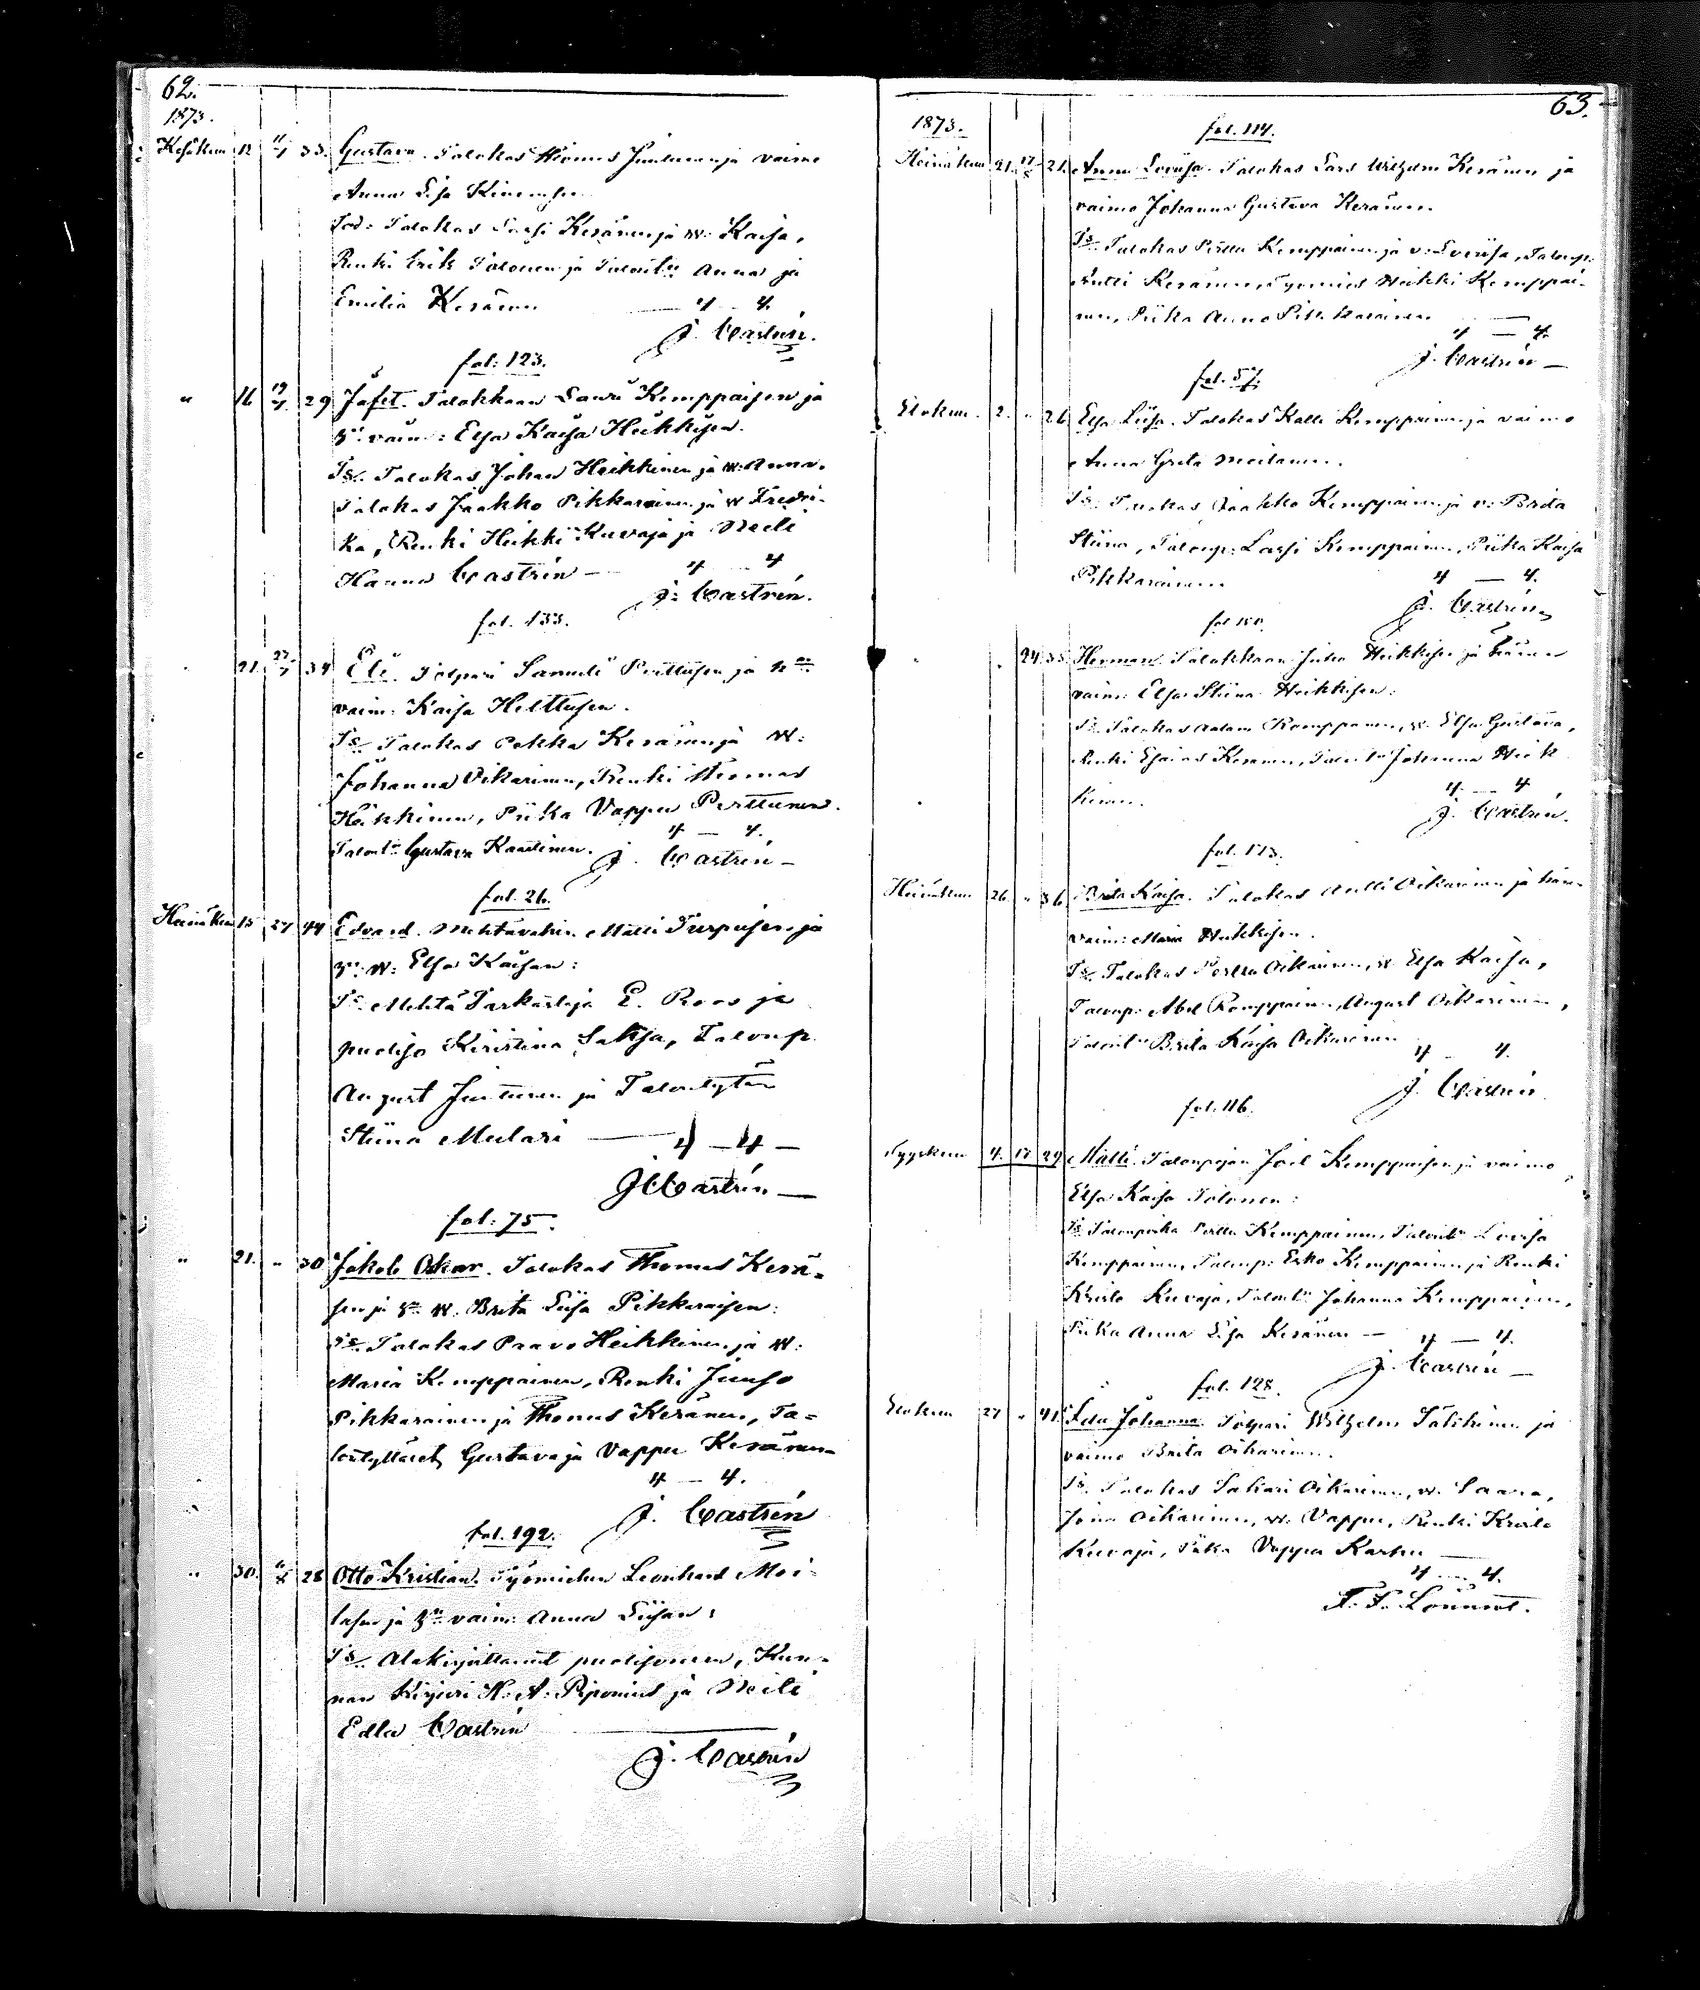 62.
1873.
Kesäkuu 12 11/7 33. Gustava. Talokas Thomas Juntunen ja vaimo
Anna Lisa Kinnunen
Tod: Talokas Lassi Keränen ja w: Kaisa,
Renki Erik Tolonen ja Talont. Anna ja
Emilia Keränen 4 — 4.
J. Castrén.
fol: 123.
" 16 29 Jafet. Talokkaan Lauri Kemppaisen ja
vaim: Elsa Kaisa Heikkisen.
Ts. Talokas Johan Heikkinen ja w: Anna.
Talokas Jaakko Pikkarainen ja w Fredri-
ka, Renki Heikki Kuvaja ja Neili
Hanna Castrén — 4 — 4
J: Castrén.
fol. 133.
21. 34 Eli. Tolpari Samuli Perttusen ja
vaim: Kaisa Helttusen.
Ts. Talokas Pekka Keränen ja w:
Johanna Oikarinen, Renki Thomas
Heikkinen, Piika Vappu Perttunen.
4 — 4.
Talont. Gustava Kaartinen. J. Castrén —
fol. 26.
Heinäkuu 15 27 44 Edvard. Mehtävahin Matti Turpeisen ja
w: Elsa Kaisan:
Ts. Mehtä Tarkastaja E. Roos ja
puoliso Kristina Saksa, Taloup.
August Juntunen ja Talontytär
Stiina Mulari — 4 — 4 —
J Castrén —
fol: 75.
" 21. " 30 Jakob Oskar. Talokas Thomas Kerä-
sen ja w. Brita Liisa Pikkaraisen:
Ts. Talokas Paavo Heikkinen ja w:
Maria Kemppainen, Renki Juuso
Pikkarainen ja Thomas Keränen, Ta-
lontyttäret Gustava ja Vappu Keränen
4 — 4.
J. Castrén
fol. 192.
" 30. 28 Otto Kristian. Työmiehen Leonhard Moi-
lasen ja vaim: Anna Liisan:
Ts. Alakirjuttanut puolisoneen, Kun-
nan Kirjuri H. A. Piponius ja Neili
Edla Castrén
J. Castrén
63.
1873. fol. 114.
Heinäkuu 21. 21. Anna Lovisa. Talokas Lars Wilhelm Keränen ja
vaimo Johanna Gustava Keränen.
Ts. Talokas Pekka Kemppainen ja v: Lovisa, Taloup:
Antti Keränen, Työmies Heikki Kemppai-
nen, Piika Anna Pikkarainen
4 — 4.
J. Castrén —
fol. 57.
Elokuu. 2. " 26 Elsa Liisa. Talokas Kalle Kemppainen ja vaimo
Anna Greta Moilanen.
Ts. Talokas Jaakko Kemppainen ja v: Brita
Stiina, Taloup: Lassi Kemppainen, Piika Kaisa
Pikkarainen. 4 — 4.
J. Castrén
24 35. Herman. Talokkaan Juho Heikkisen ja hänen
vaim: Elsa Stiina Heikkisen:
Ts. Talokas Adam Romppainen, w. Elsa Gustava,
Renki Esaias Keränen, Talont. Johanna Heik-
kinen. 4 — 4
J. Castrén.
fol. 173.
Heinäkuu 26. " 36 Brita Kaisa. Talokas Antti Oikarinen ja hän-
vaim: Maria Heikkisen.
Ts. Talokas Oikarinen, w. Elsa Kaisa,
Taloup: Abel Romppainen, August Oikarinen,
Talont. Brita Kaisa Oikarinen
4 — 4.
J. Castrén.
fol. 116.
Syyskuu 4. 17 29 Matti. Talonpojan Joel Kemppaisen ja vaimo
Elsa Kaisa Tolonen:
Ts. Talonpoika Kemppainen, Talont. Lovisa
Kemppainen, Taloup: Esko Kemppainen ja Renki
Kuvaja, Talont. Johanna Kemppainen,
Piika Anna Lisa Keränen — 4 — 4.
J. Castrén —
fol. 128.
Elokuu 27 " 41. Johanna. Tolpari Wilhelm ja
vaimo Brita Oikarinen.
Ts. Talokas Sakari Oikarinen, w. Saara,
Oikarinen, w. Vappu, Renki
Kuvaja, Piika Vappu Karhu —
4 — 4.